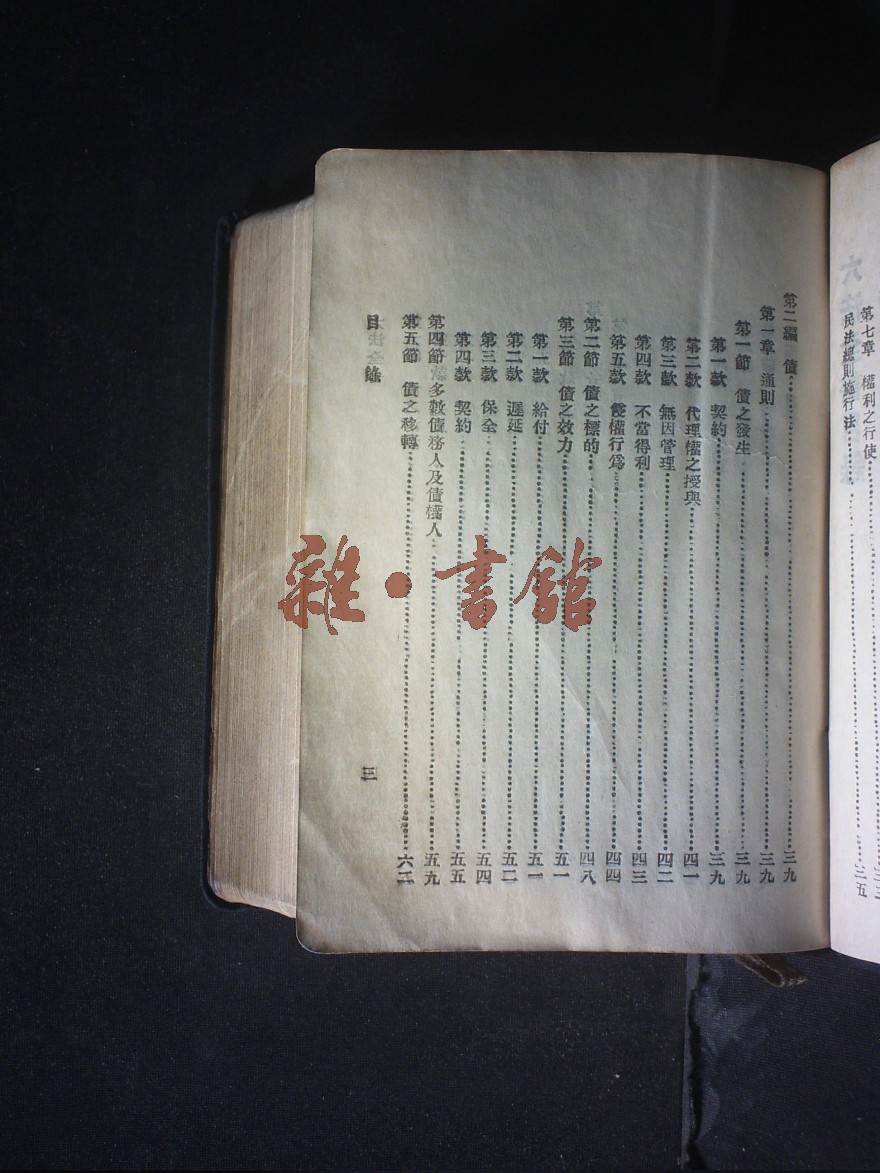 第七章　權利之行使……三三
民法總則施行法……三五
第二編　債……三九
第一章　通則……三九
第一節　債之發生……三九
第一款　契約……三九
第二款　代理權之授與……四一
第三款　無因管理……四二
第四款　不當得利……四三
第五款　侵權行爲……四四
第二節　債之標的……四八
第三節　債之效力……五一
第一款　給付……五一
第二款　遲延……五二
第三款　保全……五四
第四款　契約……五五
第四節　多數債務人及債權人……五九
第五節　債之移轉……六二
目錄
三
雜·書館